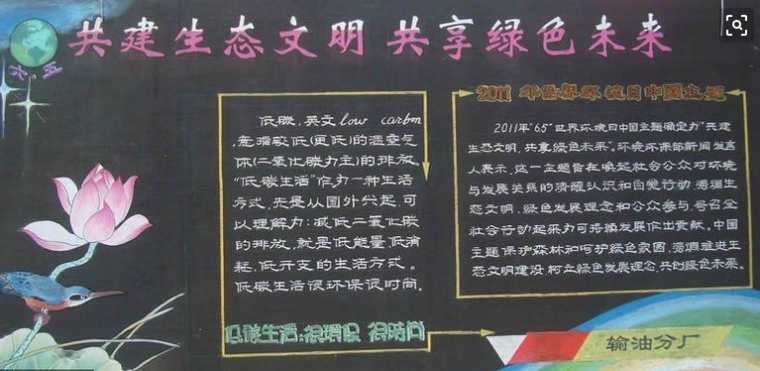 共建生态文明 共享绿色未来
六·五
2011年世界环境日中国主题
低碳，英文low carbon，
意指较低(更低)的温室气
体(二氧化碳为主)的排放。
"低碳生活"作为一种生活
方式，先是从国外兴起，可
以理解为：减低二氧化碳
的排放，就是低能量低消
耗，低开支的生活方式。
低碳生活很环保很时尚。
低碳生活：很环保 很时尚
2011年"65"世界环境日中国主题确定为"共建
生态文明，共享绿色未来"。环境保护部新闻发言
人表示，这一主题旨在唤起社会公众对环境
与发展关系的清醒认识和自觉行动，弘扬生
态文明、绿色发展理念和公众参与，号召全
社会行动起来为可持续发展作出贡献。中国
主题保护森林和呵护绿色家园，弘扬推进生
态文明建设，树立绿色发展理念，共创绿色未来。
输油分厂